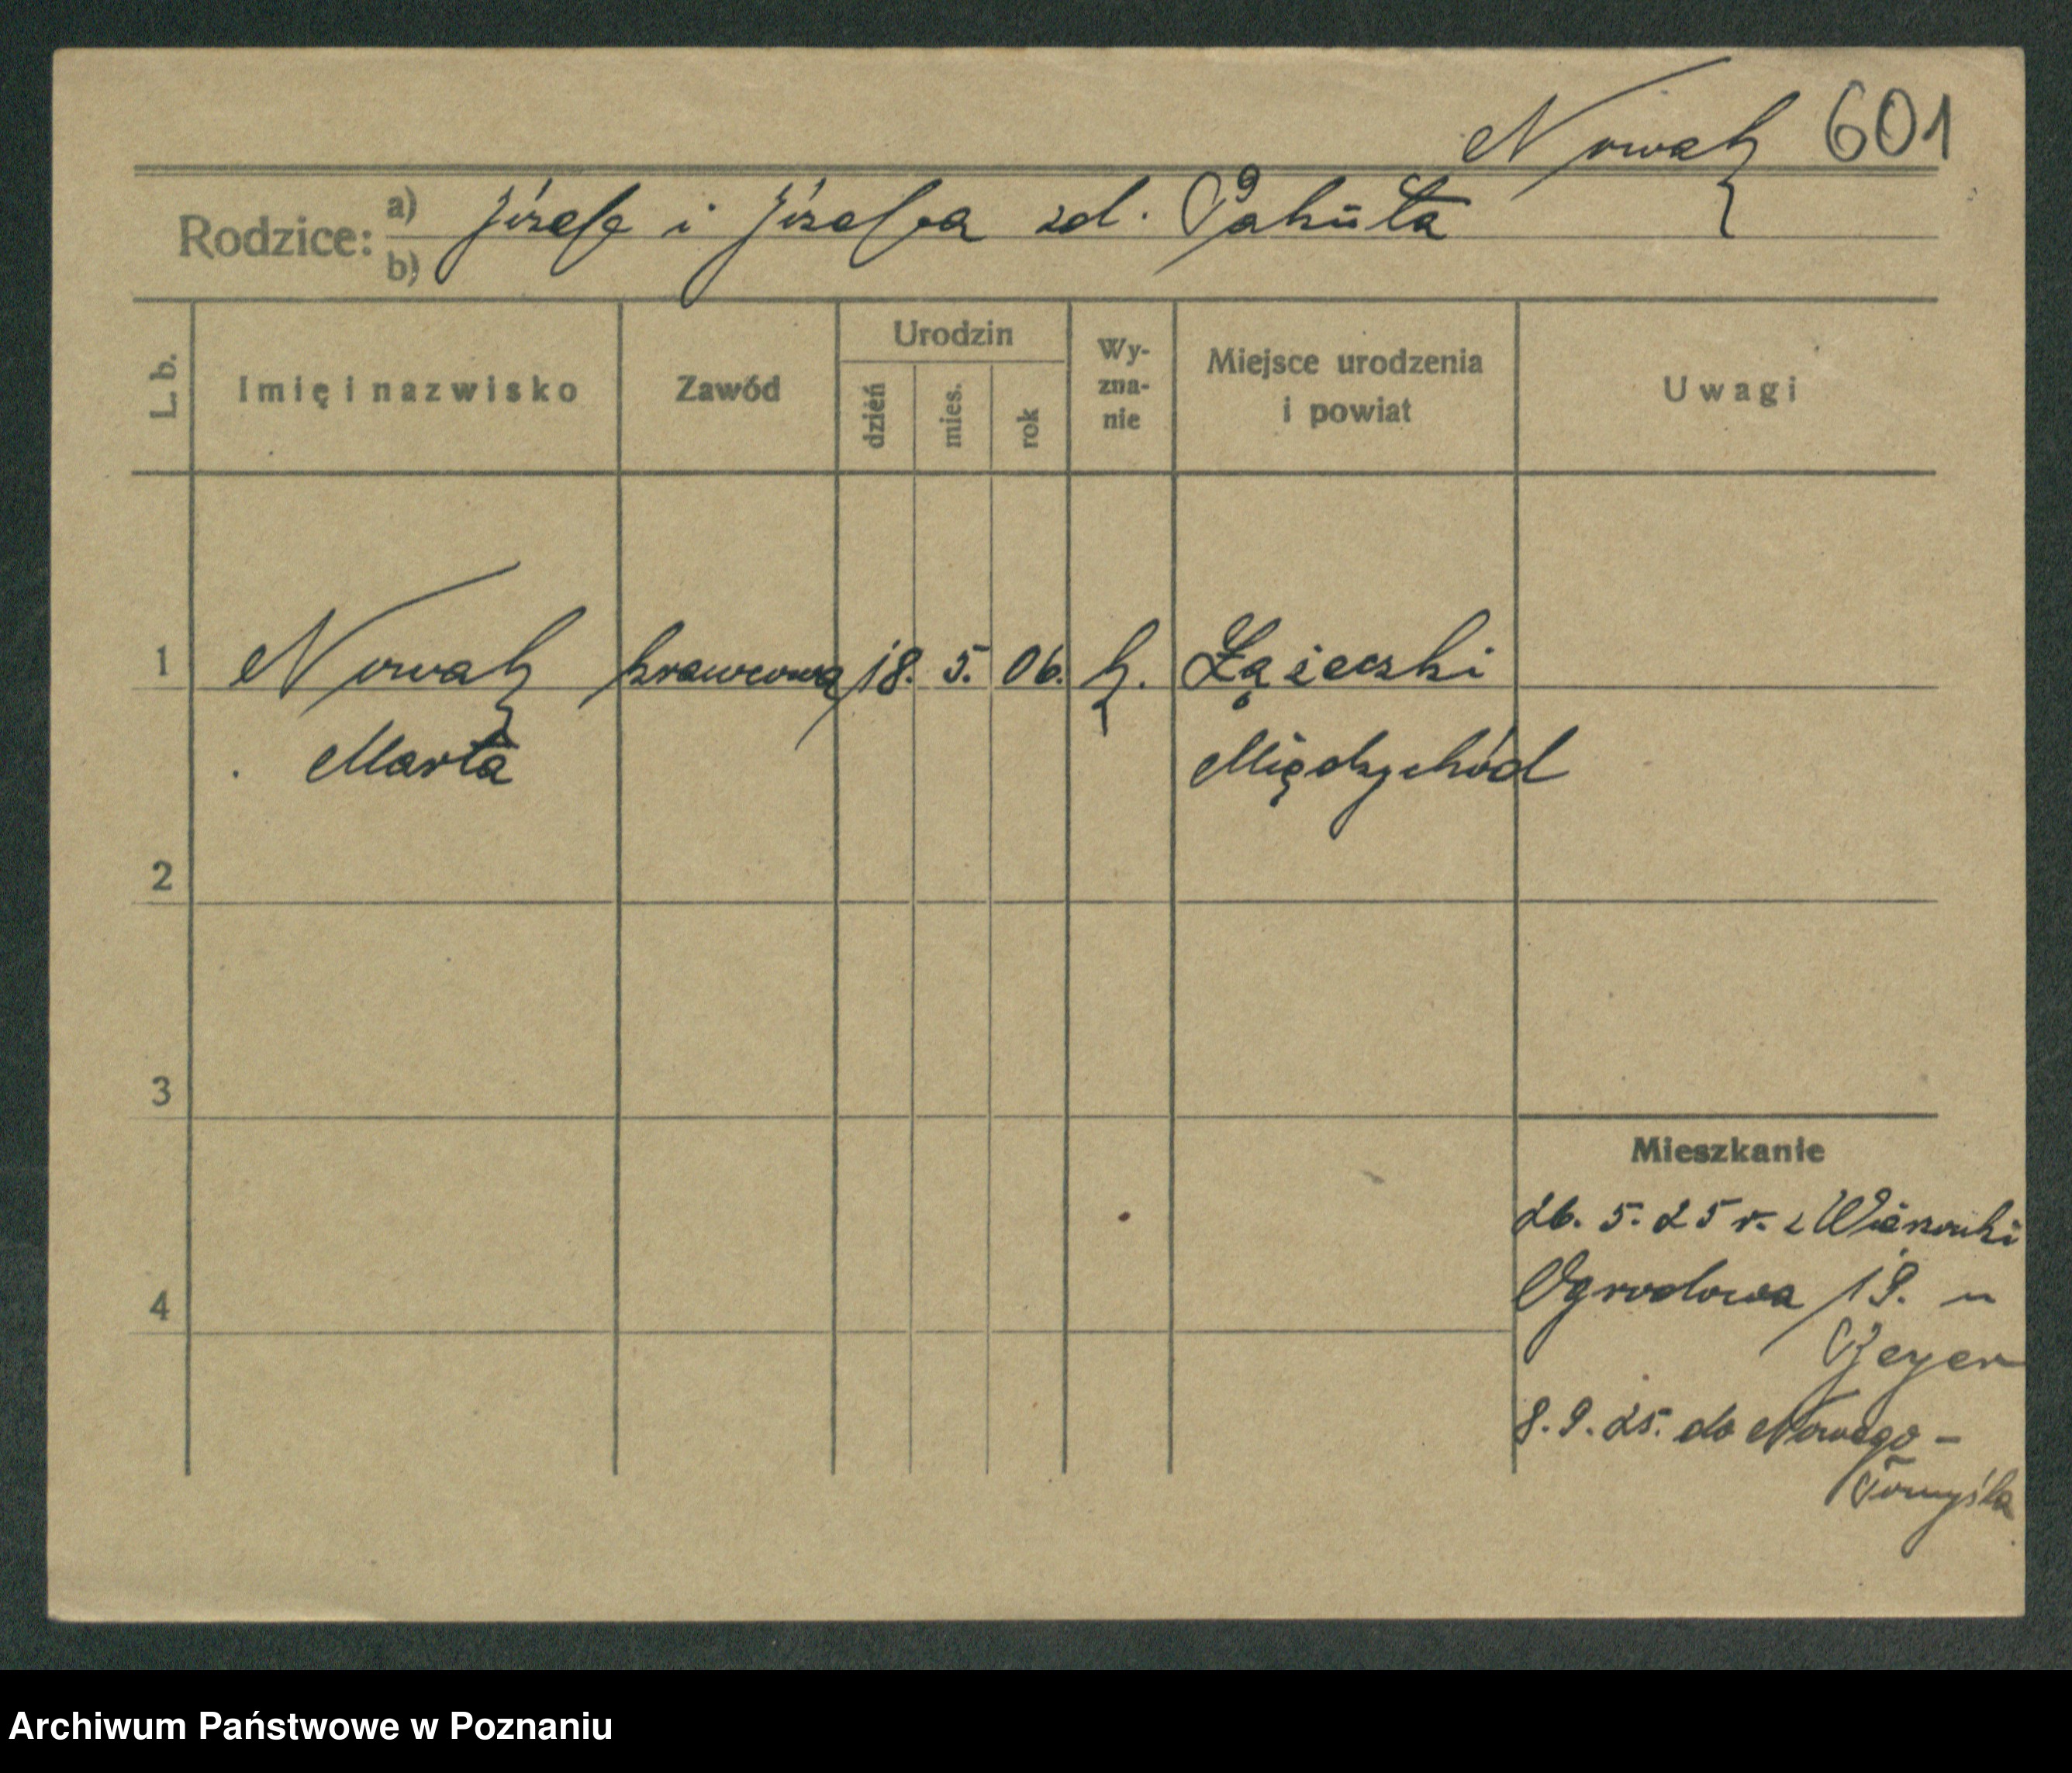 Nowak 601
Rodzice: a) Józefa i Józefa zd. Pakuła
b)
L. b. Imię i nazwisko Zawód Urodzin dzień mies. rok Wy-zna-nie Miejsce urodzenia i powiat Uwagi
1 Nowak krawcowa 18. 5. 06. k. Łężeczki
Marta Międzychód
2
3
Mieszkanie
26. 5. 25 r. z
Ogrodowa 19. u
4
Beyer
8. 9. 25. do Nowego-
Tomyśla
Archiwum Państwowe w Poznaniu